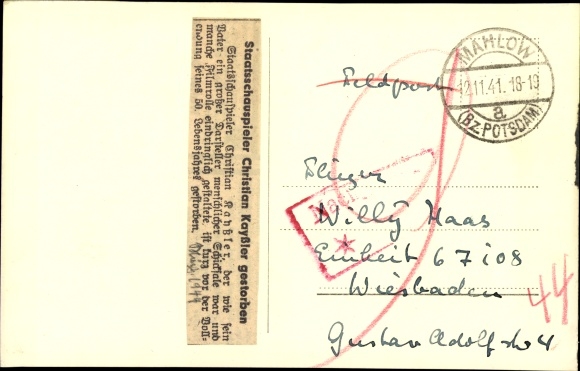 Staatsschauspieler Christian Kayßler gestorben
Staatsschauspieler Christian Kayßler, der wie sein
Vater ein großer Darsteller menschlicher Schicksale war und
manche Filmrolle eindringlich gestaltete, ist kurz vor der Voll-
endung seines 50. Lebensjahres gestorben.
1944
MAHLOW
12.11.41.18-19
a
(BZ.POTSDAM)
Feldpost
Flieger
Willy Haas
Einheit 67108
Wiesbaden
Gustav Adolfstr 4
44